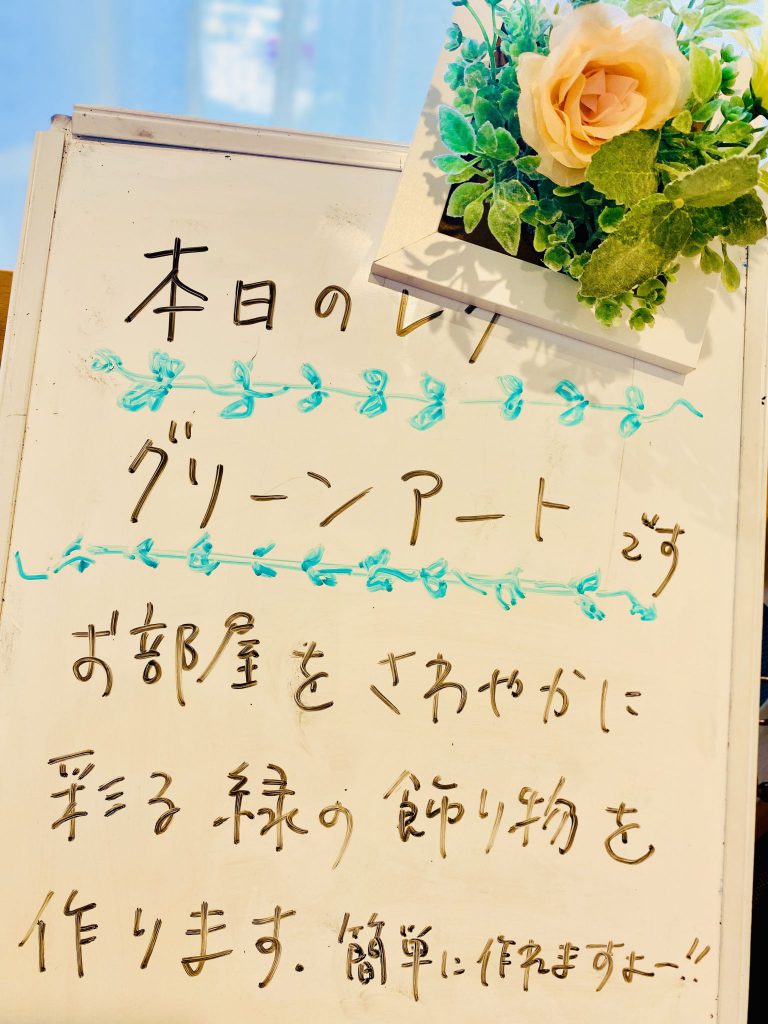 本日のレク
グリーンアートです
お部屋をさわやかに
彩る緑の飾り物を
作ります. 簡単に作れますよー!!